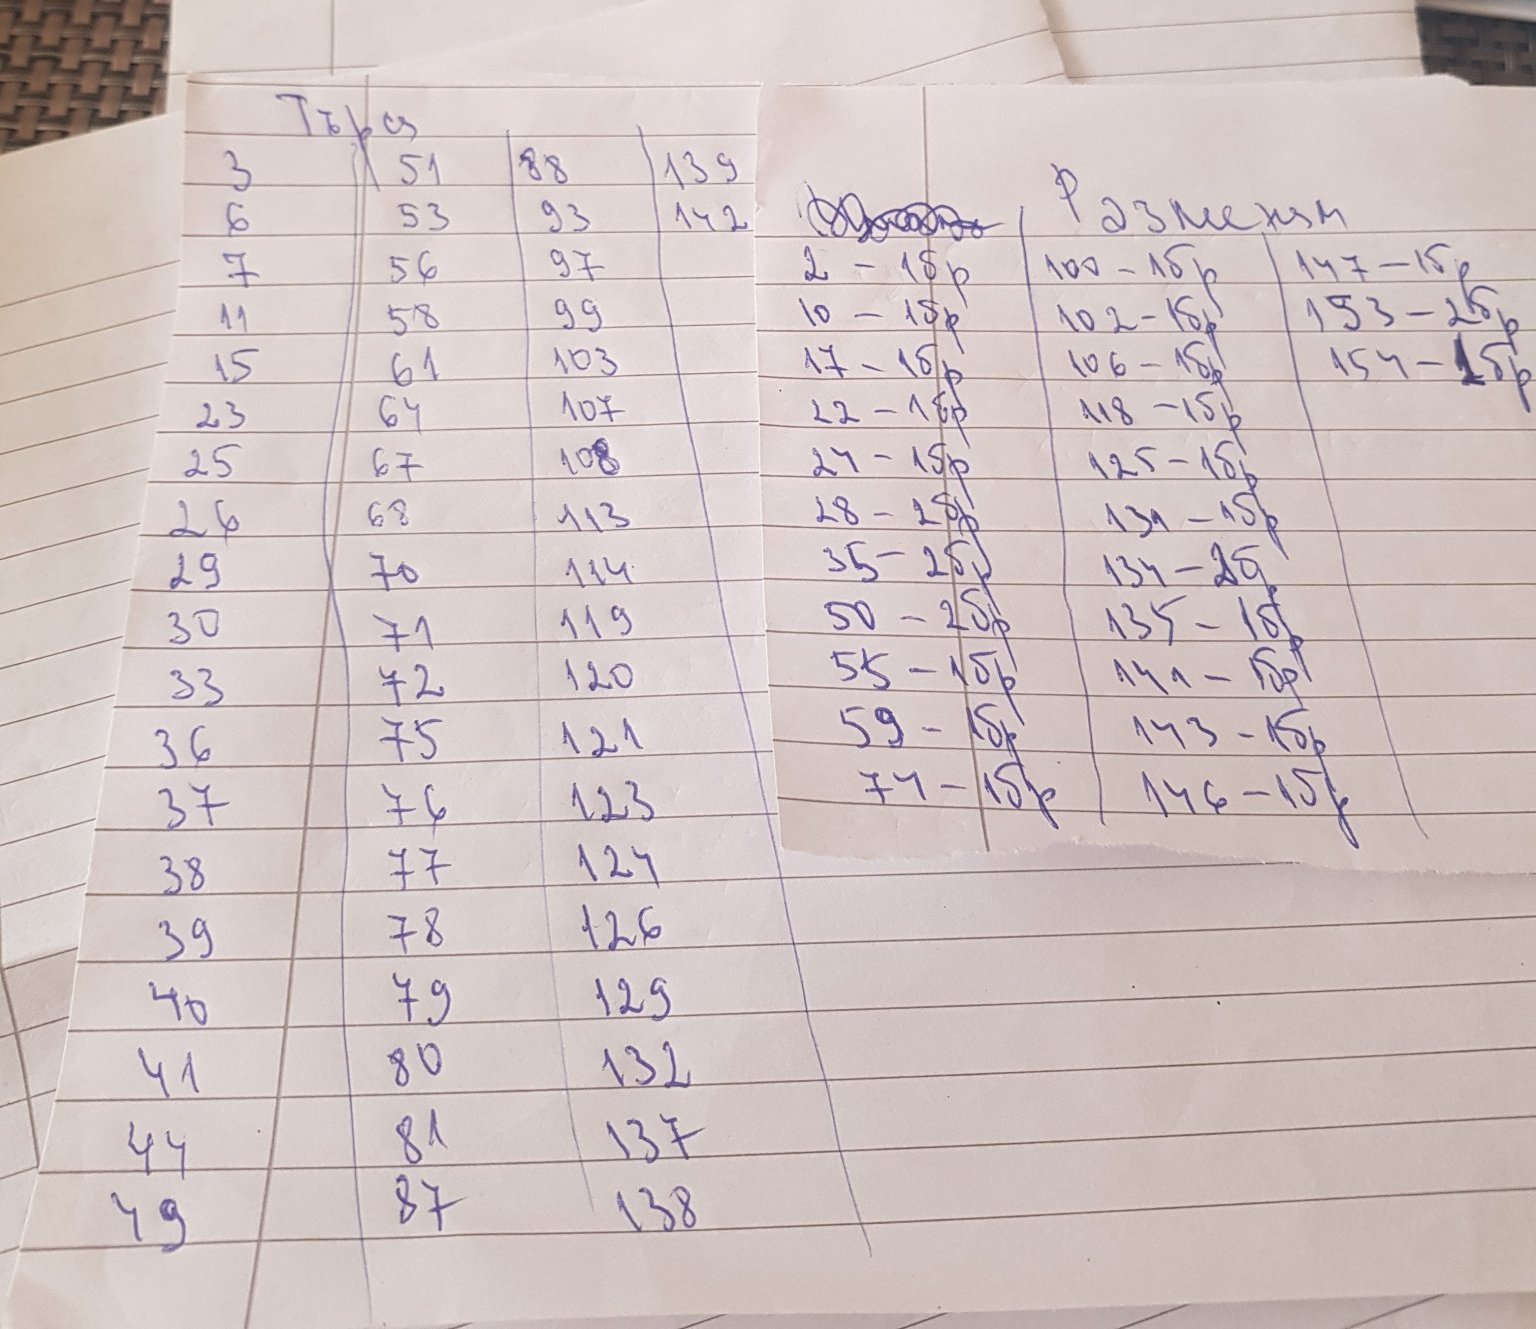 Търся
3 51 88 139
6 53 93 142
7 56 97
11 58 99
15 61 103
23 64 107
25 67 108
26 68 113
29 70 114
30 71 119
33 72 120
36 75 121
37 76 123
38 77 124
39 78 126
40 79 129
41 80 132
44 81 137
49 87 138
Разменям
2 - 1бр 100 - 1бр 147 - 1бр
10 - 1бр 102 - 1бр 153 - 2бр
17 - 1бр 106 - 1бр 154 - 1бр
22 - 1бр 118 - 1бр
24 - 1бр 125 - 1бр
28 - 2бр 131 - 1бр
35 - 2бр 134 - 2бр
50 - 2бр 135 - 1бр
55 - 1бр 141 - 1бр
59 - 1бр 143 - 1бр
74 - 1бр 146 - 1бр